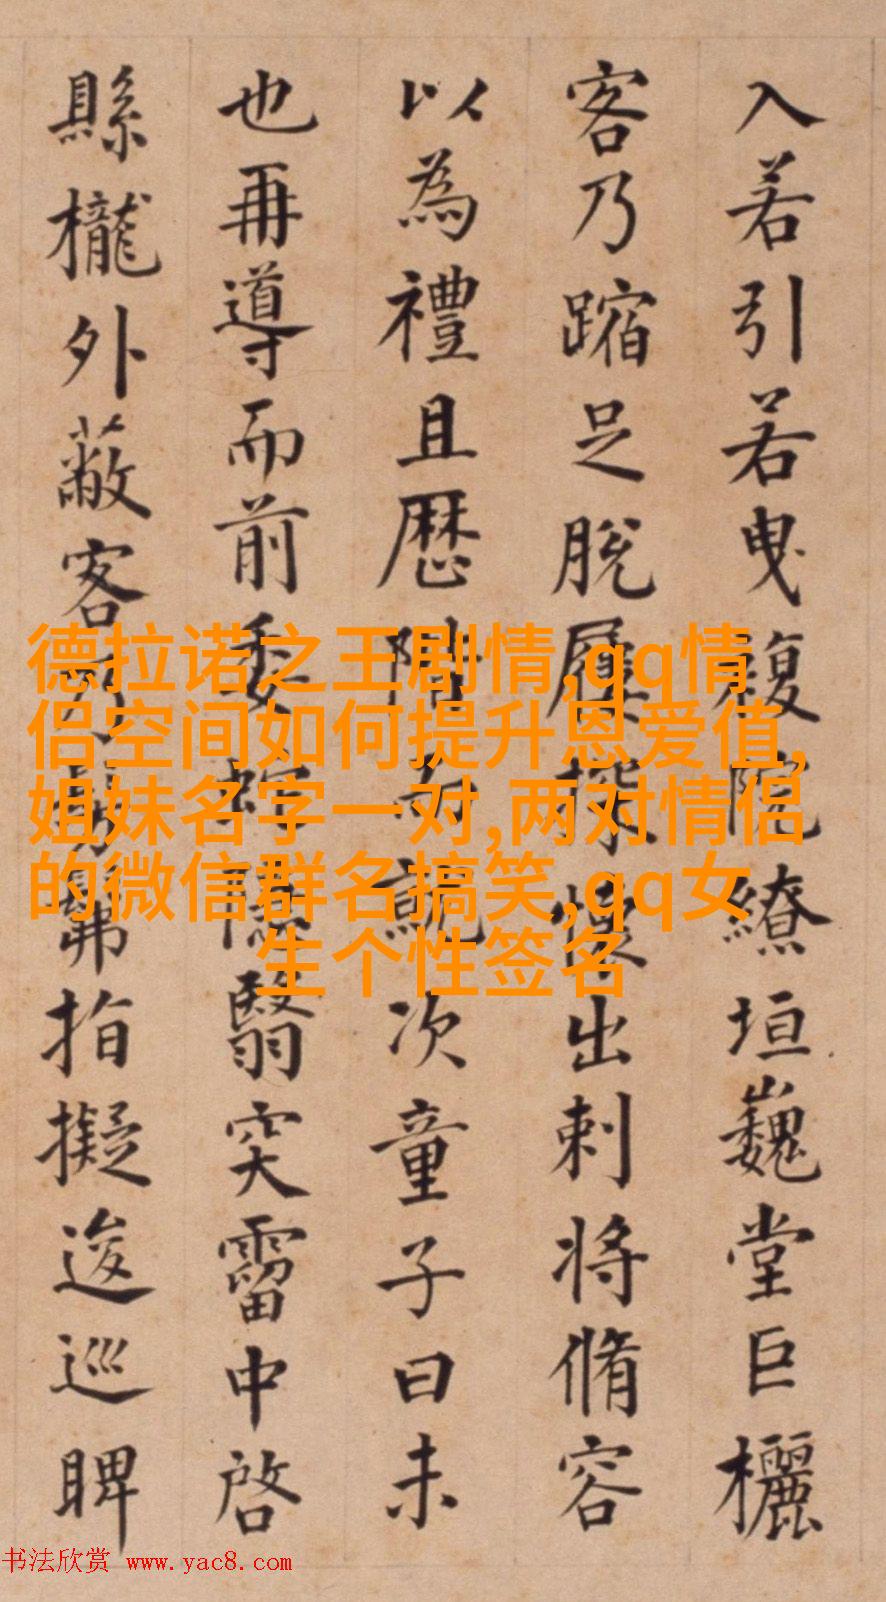 入若引若曳複院繚垣巍堂巨欐
客乃蹜足脫履探懷出刺将脩容
以為禮且歷階而就次童子曰未
也再導而前委隱翳突霤中啓
縣櫳外蔽客乃髣髴指擬逡巡睥
德拉诺之王剧情,qq情
侣空间如何提升恩爱值,
姐妹名字一对,两对情侣
的微信群名搞笑,qq女
生个性签名
书法欣赏 www.yac8.com